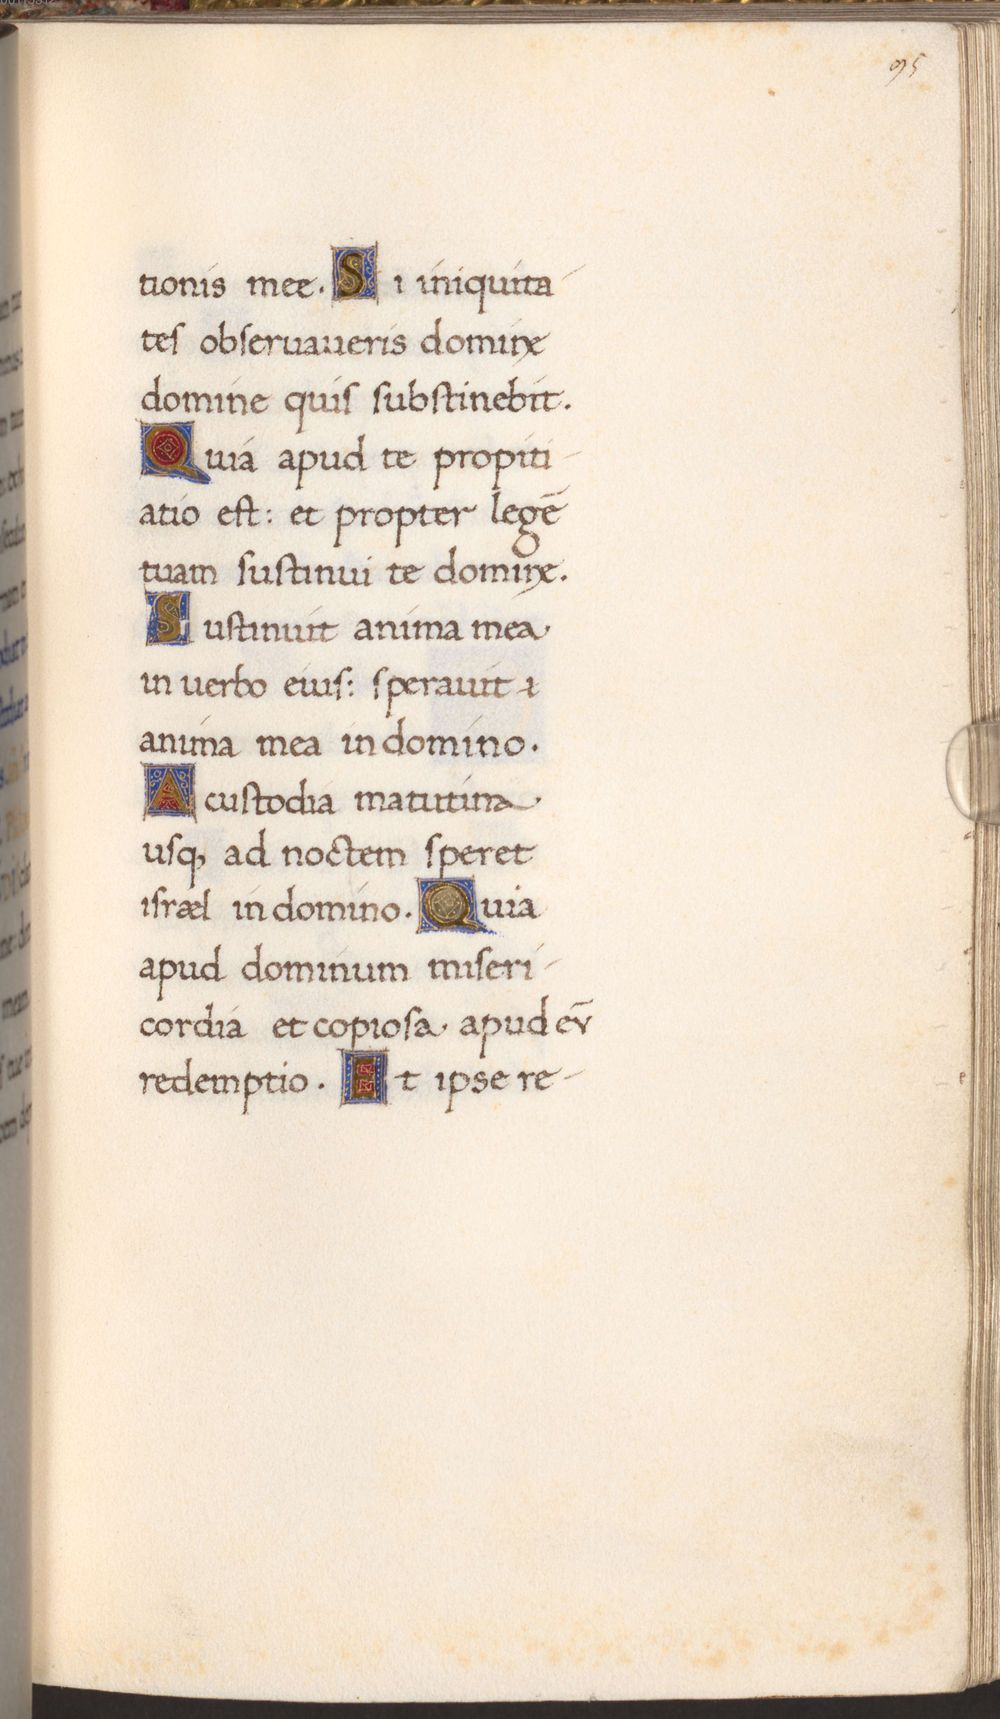 95
tionis mee. Si iniquita-
teſ obſeruaueris domine
domine quiſ ſubſtinebit.
Quia apud te propiti-
atio eſt: et propter legē
tuam ſuſtinui te domine.
Suſtinuit anima mea
in uerbo eiuſ: ſperauit
anima mea in domino.
A cuſtodia matutina
uſq, ad noctem ſperet
iſrael in domino. Quia
apud dominum miſeri-
cordia et copioſa apud eū
redemptio. Et ipse re-